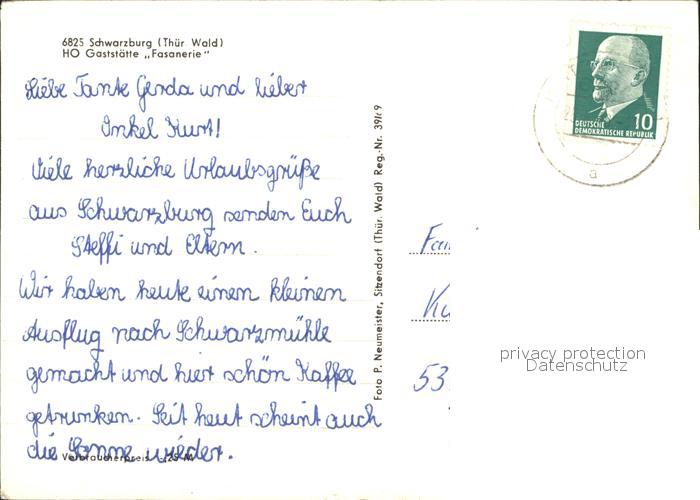 6825 Schwarzburg (Thür Wald)
HO Gaststätte „Fasanerie"
Liebe Tante Gerda und lieber
Onkel Kurt!
Viele herzliche Urlaubsgrüße
aus Schwarzburg senden Euch
Steffi und Eltern.
Wir haben heute einen kleinen
Ausflug nach Schwarzmühle
gemacht und hier schön Kaffee
getrunken. Seit heut scheint auch
die Sonne wieder.
Verbraucherpreis
Foto P. Neumeister, Sitzendorf (Thür. Wald) Reg.-Nr. 39/r9
10
DEUTSCHE
DEMOKRATISCHE REPUBLIK
a
Fam
Ku
53
privacy protection
Datenschutz